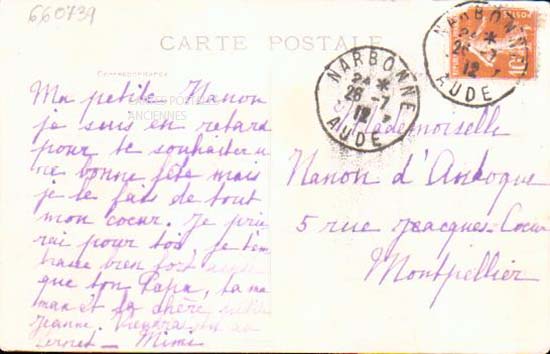 660739
CARTE POSTALE
Correspondance
Ma petite Nanon
je suis en retard
pour te souhaiter u
ne bonne fête mais
je le fais de tout
mon coeur. Je prie
rai pour toi, je t'em
brasse bien fort
que ton Papa, ta ma
man et ta chère petite
Jeanne.
Vernet — Mimi
CARTES POSTALES
ANCIENNES
NARBONNE
24 *
26 - 7
12
AUDE
NARBONNE
24 *
26 - 7
12
AUDE
10c
Mademoiselle
Nanon d'Andoque
5 rue Jacques-Coeur
Montpellier